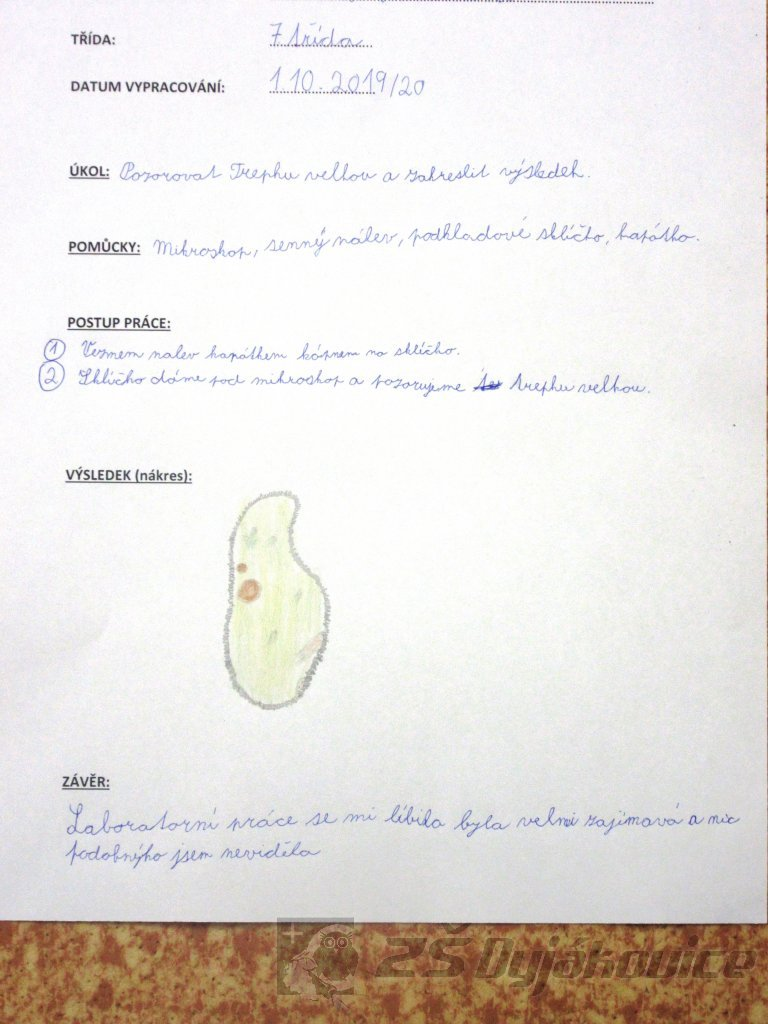 TŘÍDA: 7 třída
DATUM VYPRACOVÁNÍ: 1.10.2019/20
ÚKOL: Pozorovat Trepku velkou a zakreslit výsledek.
POMŮCKY: Mikroskop, senný nálev, podkladové sklíčko, kapátko.
POSTUP PRÁCE:
1 Vezmem nalev kapátkem kápnem na sklíčko.
2 Sklíčko dáme pod mikroskop a pozorujeme trepku velkou.
VÝSLEDEK (nákres):
ZÁVĚR:
Laboratorní práce se mi líbila byla velmi zajímavá a nic
podobnýho jsem neviděla
ZŠ Dyjákovice